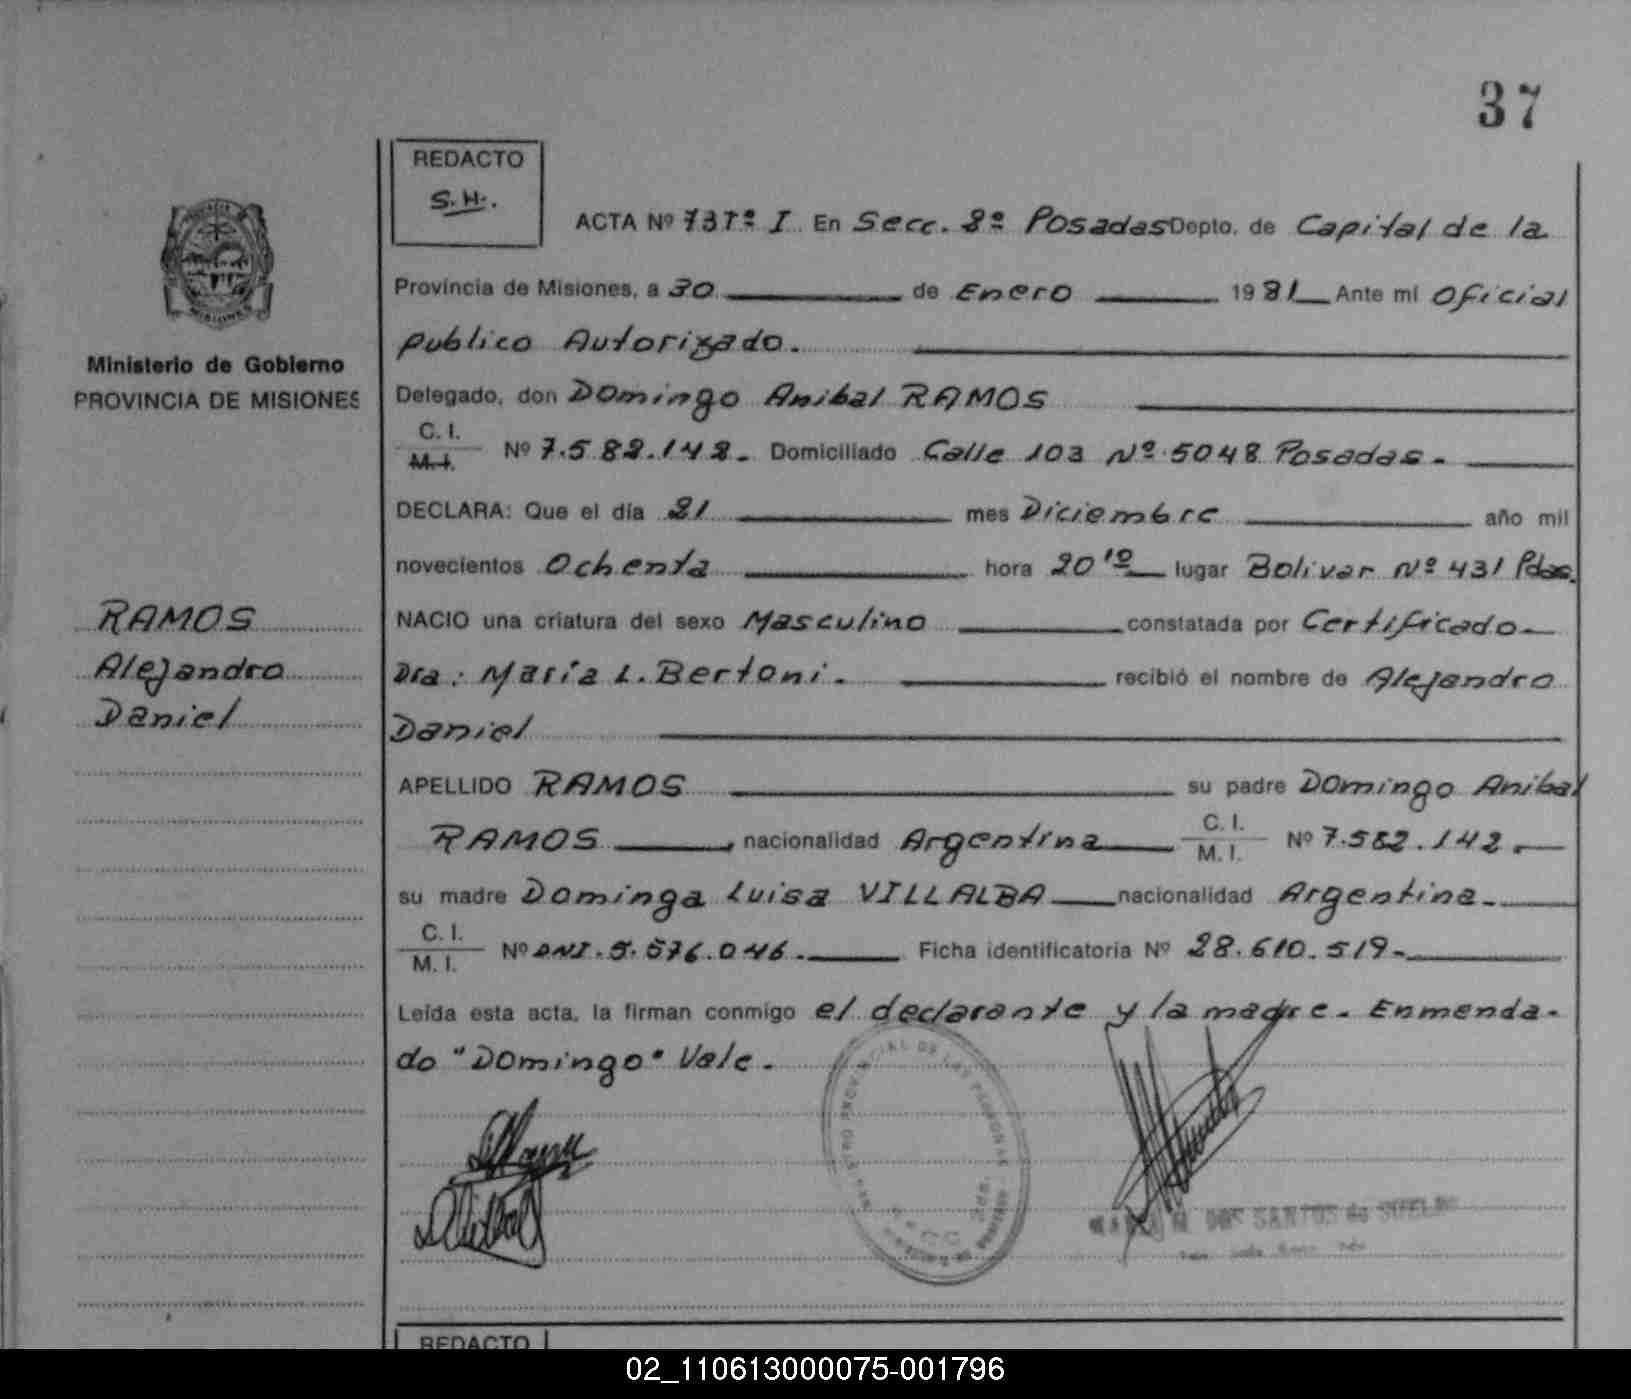 37
REDACTO
S.H.
ACTA Nº 737º I En Secc. 2º Posadas Depto. de Capital de la
Provincia de Misiones, a 30 de Enero 1981 Ante mi Oficial
publico Autorizado.
Ministerio de Gobierno
PROVINCIA DE MISIONES
Delegado, don Domingo Anibal RAMOS
C. I.
M. I. Nº 7.582.142. Domiciliado Calle 103 Nº 5048 Posadas.
DECLARA: Que el día 21 mes Diciembre año mil
novecientos Ochenta hora 20 lugar Bolivar Nº 431 Pdas.
RAMOS
Alejandro
Daniel
NACIO una criatura del sexo Masculino constatada por Certificado
Dra: María L. Bertoni. recibió el nombre de Alejandro
Daniel
APELLIDO RAMOS su padre Domingo Anibal
RAMOS, nacionalidad Argentina C. I.
M. I. Nº 7.582.142.
su madre Dominga Luisa VILLALBA nacionalidad Argentina.
C. I.
M. I. Nº DNI. 5.576.046. Ficha identificatoria Nº 28.610.519.
Leída esta acta, la firman conmigo el declarante y la madre. Enmenda-
do "Domingo" Vale.
DOS SANTOS de
REDACTO
02_110613000075-001796